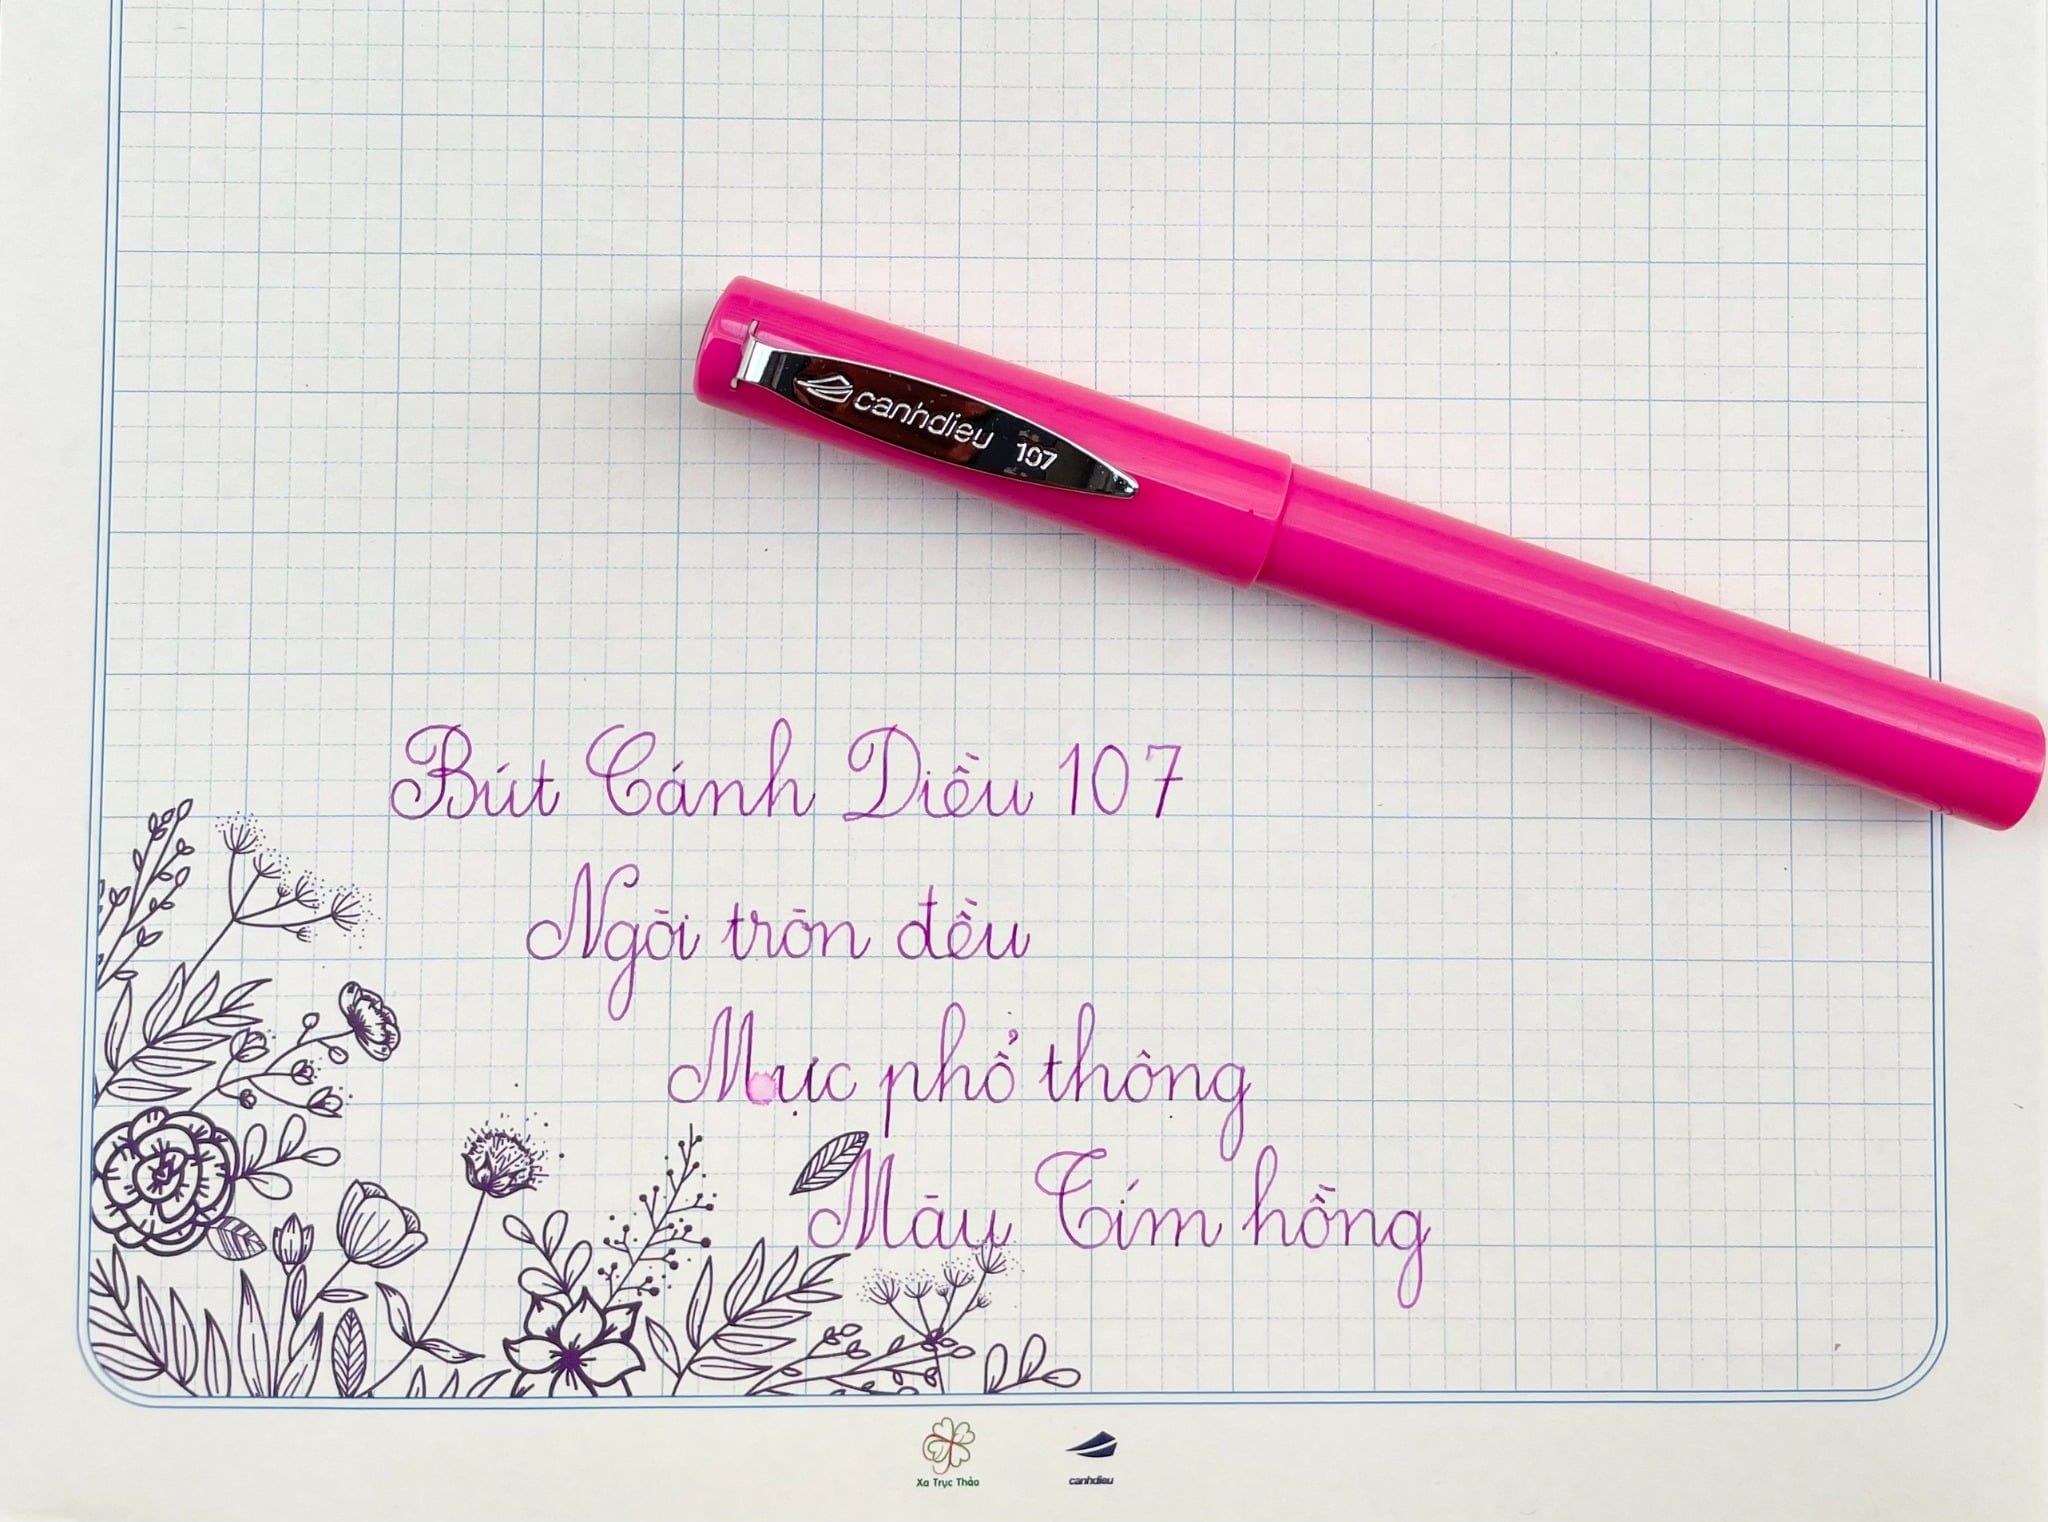 canhdieu 107
Bút Cánh Diều 107
Ngòi tròn đều
Mực phổ thông
Màu Tím hồng
Xa Trục Thảo
canhdieu